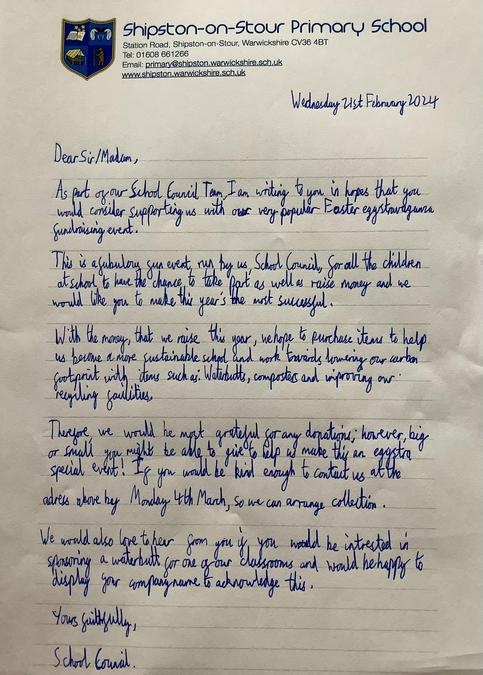 Shipston-on-Stour Primary School
Station Road, Shipston-on-Stour, Warwickshire CV36 4BT
Tel: 01608 661266
Email: primary@shipston.warwickshire.sch.uk
www.shipston.warwickshire.sch.uk
Wednesday 21st February 2024
Dear Sir/Madam,
As part of our School Council Team, I am writing to you in hopes that you
would consider supporting us with our very popular Easter eggstravaganza
fundraising event.
This is a fabulous fun event, run by us, School Council, for all the children
at school to have the chance to take part as well as raise money and we
would like you to make this year's the most successful.
With the money, that we raise this year, we hope to purchase items to help
us become a more sustainable school and work towards lowering our carbon
footprint with items such as: Waterbutts, composters and improving our
recycling facilities.
Therefore, we would be most grateful for any donations; however, big
or small, you might be able to give to help us make this an eggstra
special event! If you would be kind enough to contact us at the
adress above by Monday 4th March, so we can arrange collection.
We would also love to hear from you if you would be intrested in
sponsoring a waterbutt for one of our classrooms and would be happy to
display your company name to acknowledge this.
Yours faithfully,
School Council.